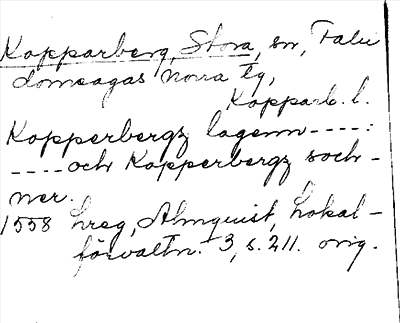 Kopparberg, Stora, sn, Falu
domsagas norra tg,
Kopparb. l.
Kopperbergz lagenn ----:
---- och Kopperbergz soch-
ner.
1558 hreg, Almquist, Lokal-
förvaltn. 3, s. 211. orig.